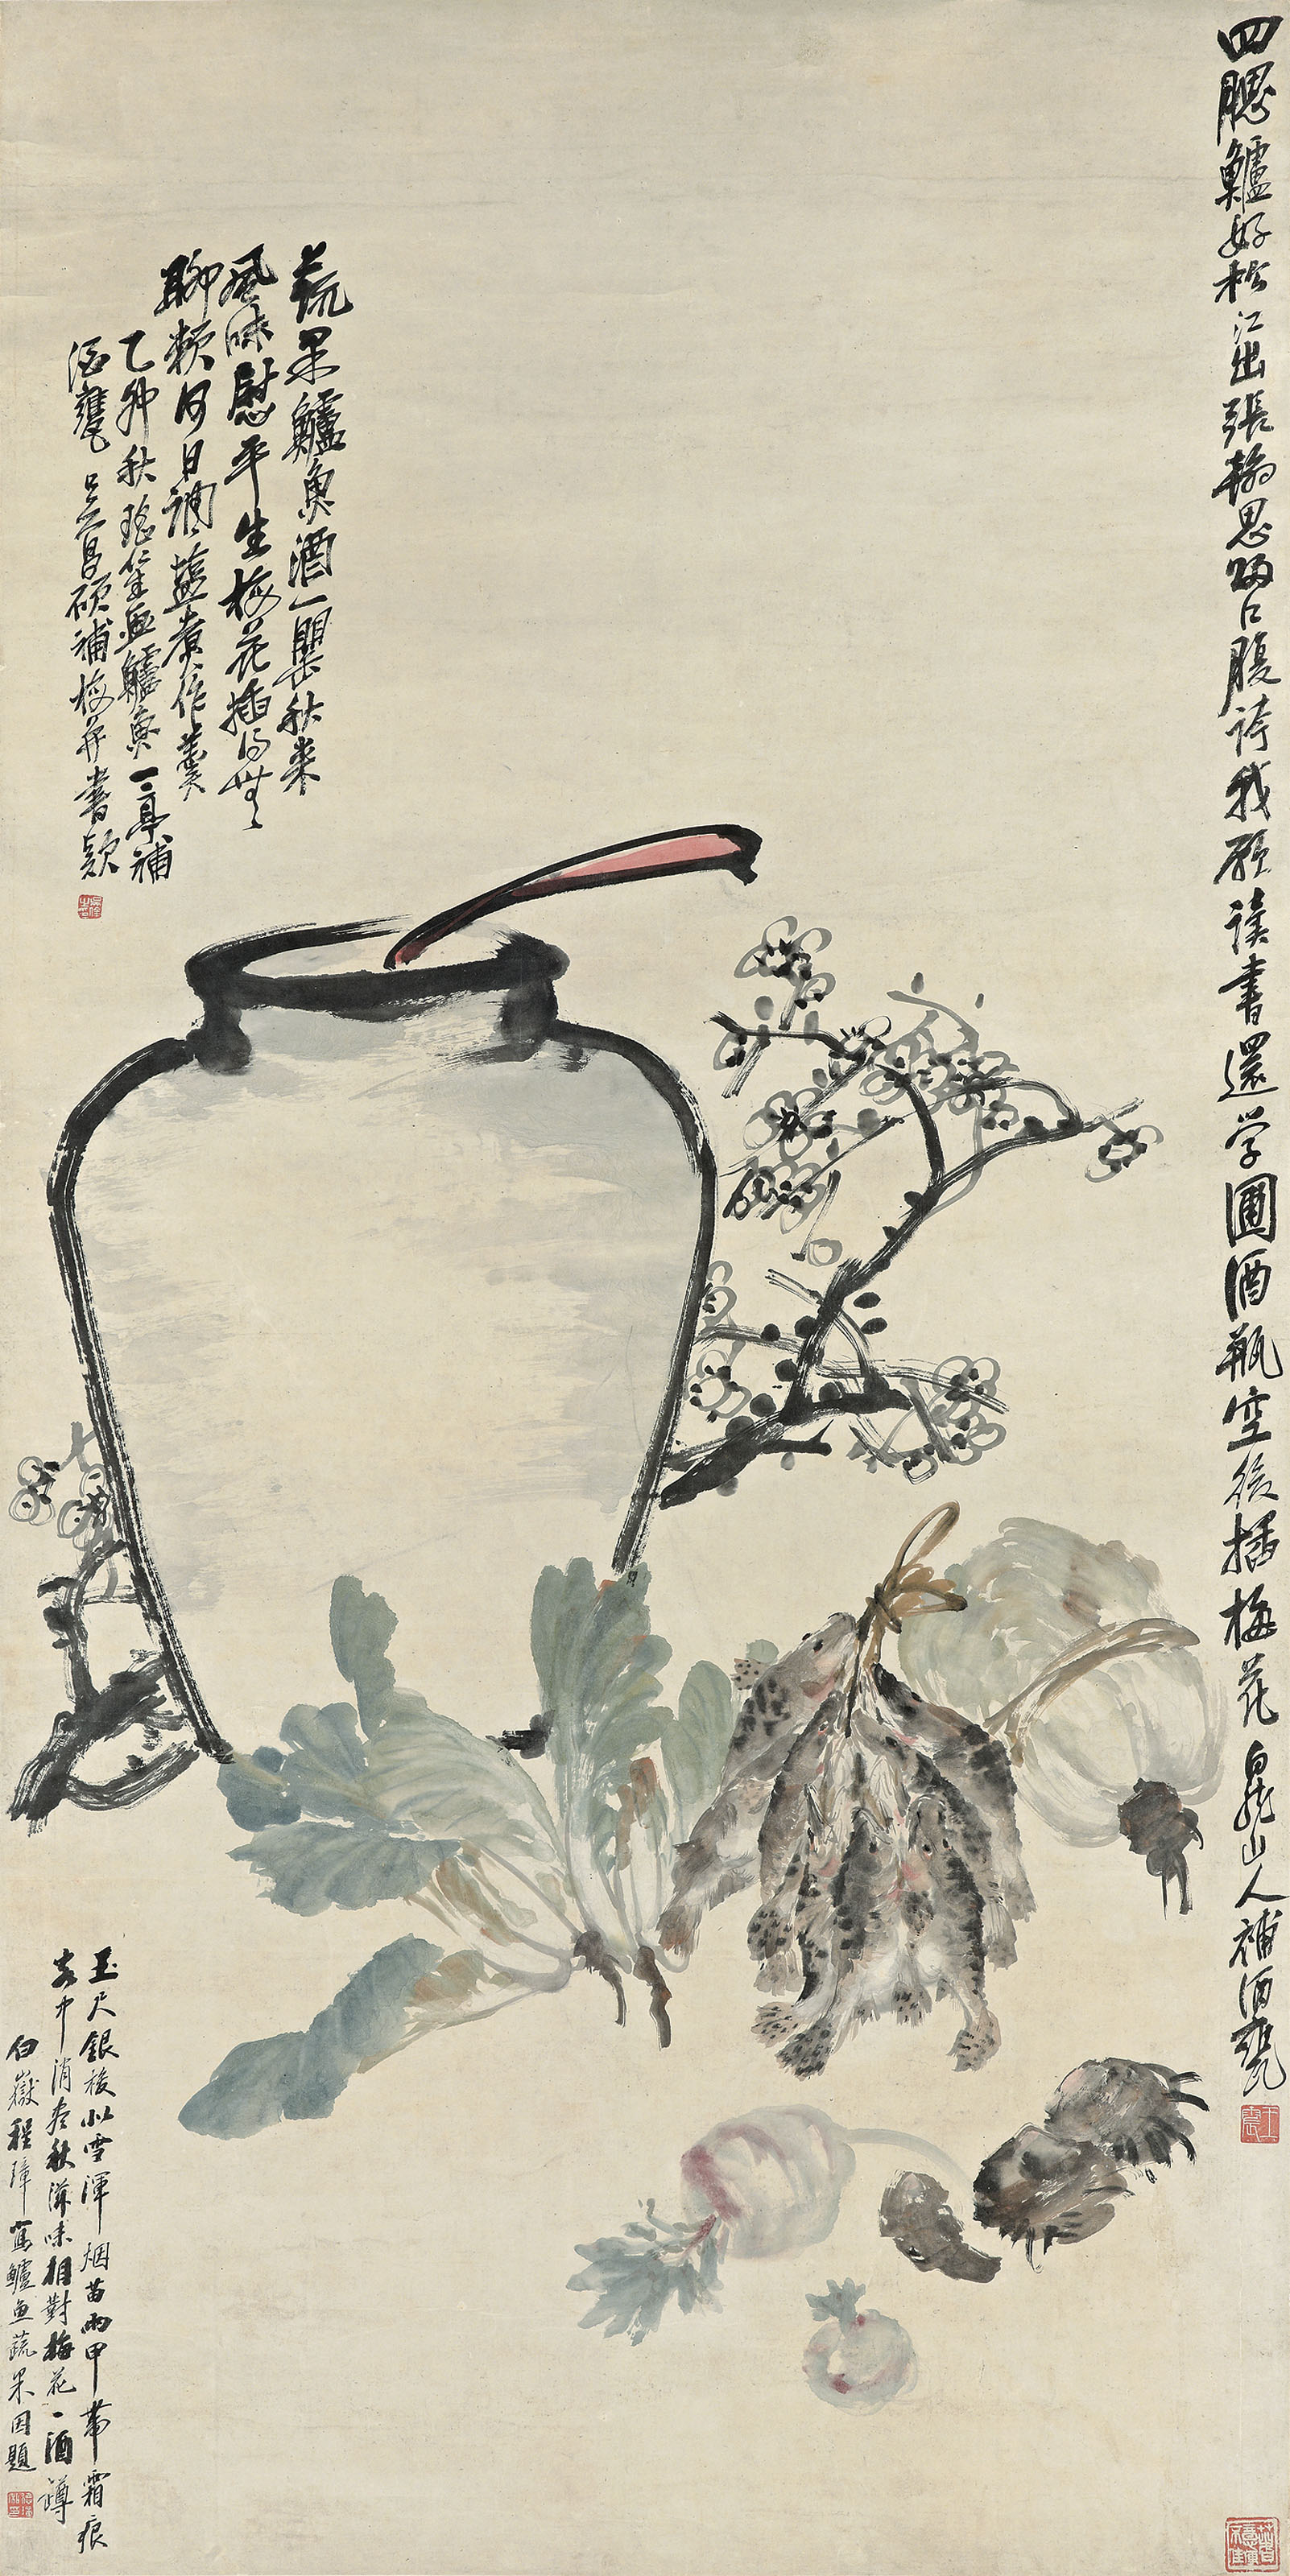 四腮鱸好松江出張翰思歸口腹誇我願讀書還学圃酒瓶空後插梅花 白龍山人補酒甕
蔬果鱸魚酒一罌秋來
風味慰平生梅花插得無
聊賴何日調鹽煮作羹
乙卯秋瑤笙畫鱸魚一亭補
酒甕吳昌碩補梅并書款
玉尺銀梭似雪渾烟苗雨甲帶霜痕
客中消受秋滋味相對梅花一酒罇
白嶽程璋寫鱸魚蔬果因題